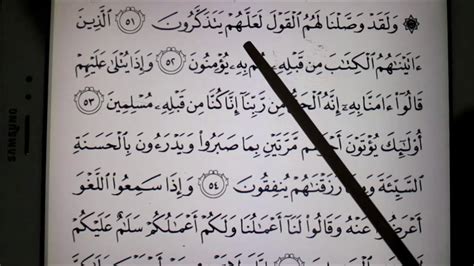 ۞ وَلَقَدْ وَصَّلْنَا لَهُمُ ٱلْقَوْلَ لَعَلَّهُمْ يَتَذَكَّرُونَ ٥١ ٱلَّذِينَ
ءَاتَيْنَٰهُمُ ٱلْكِتَٰبَ مِن قَبْلِهِۦ هُم بِهِۦ يُؤْمِنُونَ ٥٢ وَإِذَا يُتْلَىٰ عَلَيْهِمْ
قَالُوٓا۟ ءَامَنَّا بِهِۦٓ إِنَّهُ ٱلْحَقُّ مِن رَّبِّنَآ إِنَّا كُنَّا مِن قَبْلِهِۦ مُسْلِمِينَ ٥٣
أُو۟لَٰٓئِكَ يُؤْتَوْنَ أَجْرَهُم مَّرَّتَيْنِ بِمَا صَبَرُوا۟ وَيَدْرَءُونَ بِٱلْحَسَنَةِ
ٱلسَّيِّئَةَ وَمِمَّا رَزَقْنَٰهُمْ يُنفِقُونَ ٥٤ وَإِذَا سَمِعُوا۟ ٱللَّغْوَ
أَعْرَضُوا۟ عَنْهُ وَقَالُوا۟ لَنَآ أَعْمَٰلُنَا وَلَكُمْ أَعْمَٰلُكُمْ سَلَٰمٌ عَلَيْكُمْ
SAMSUNG